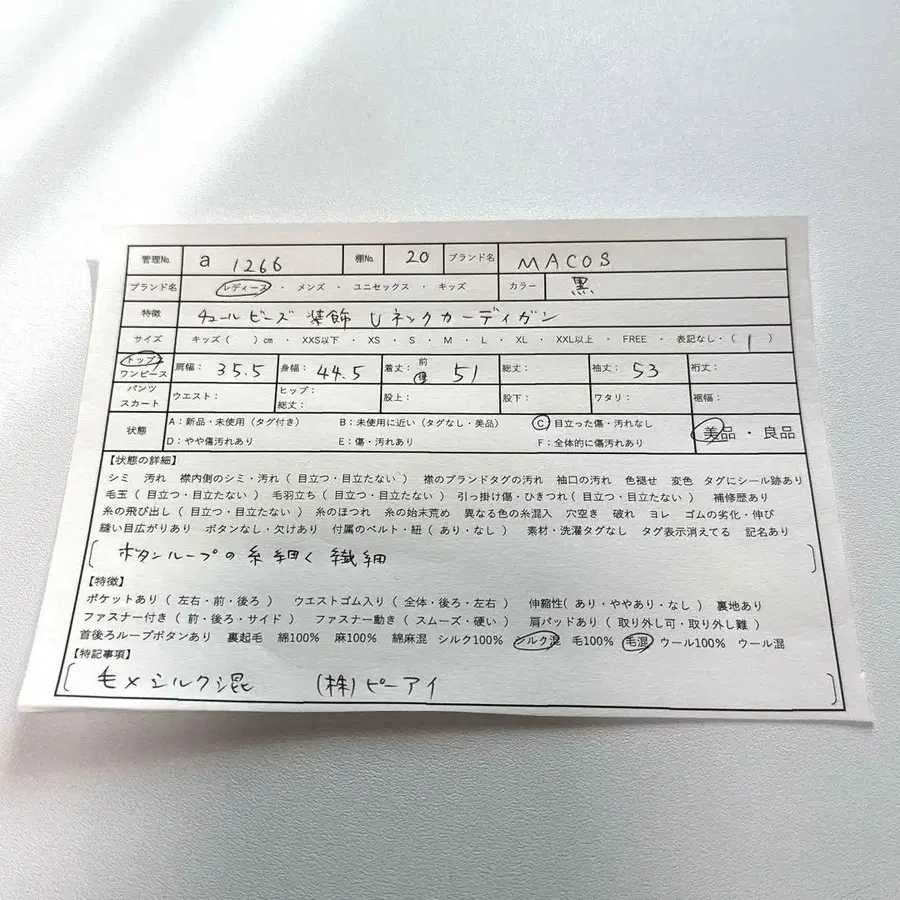 管理No. a 1266 棚No. 20 ブランド名 MACOS
ブランド名 レディース ・ メンズ ・ ユニセックス ・ キッズ カラー 黒
特徴 チュール ビーズ 装飾 Uネックカーディガン
サイズ キッズ ( ) cm ・ XXS以下 ・ XS ・ S ・ M ・ L ・ XL ・ XXL以上 ・ FREE ・ 表記なし ・ ( 1 )
トップス ワンピース 肩幅: 35.5 身幅: 44.5 着丈: 前 後 51 総丈: 袖丈: 53 裄丈:
パンツ スカート ウエスト: ヒップ: 総丈: 股上: 股下: ワタリ: 裾幅:
状態 A:新品・未使用(タグ付き) B:未使用に近い(タグなし・美品) C 目立った傷・汚れなし 美品 ・ 良品
D:やや傷汚れあり E:傷・汚れあり F:全体的に傷汚れあり
【状態の詳細】
シミ 汚れ 襟内側のシミ・汚れ ( 目立つ・目立たない ) 襟のブランドタグの汚れ 袖口の汚れ 色褪せ 変色 タグにシール跡あり
毛玉 ( 目立つ・目立たない ) 毛羽立ち ( 目立つ・目立たない ) 引っ掛け傷・ひきつれ ( 目立つ・目立たない ) 補修歴あり
糸の飛び出し ( 目立つ・目立たない ) 糸のほつれ 糸の始末荒め 異なる色の糸混入 穴空き 破れ ヨレ ゴムの劣化・伸び
縫い目広がりあり ボタンなし・欠けあり 付属のベルト・紐 ( あり・なし ) 素材・洗濯タグなし タグ表示消えてる 記名あり
( ボタンループの糸細く 繊細 )
【特徴】
ポケットあり ( 左右・前・後ろ ) ウエストゴム入り ( 全体・後ろ・左右 ) 伸縮性 ( あり・ややあり・なし ) 裏地あり
ファスナー付き ( 前・後ろ・サイド ) ファスナー動き ( スムーズ・硬い ) 肩パッドあり ( 取り外し可・取り外し難 )
首後ろループボタンあり 裏起毛 綿100% 麻100% 綿麻混 シルク100% シルク混 毛100% 毛混 ウール100% ウール混
【特記事項】
( 毛×シルク混 (株)ピーアイ )